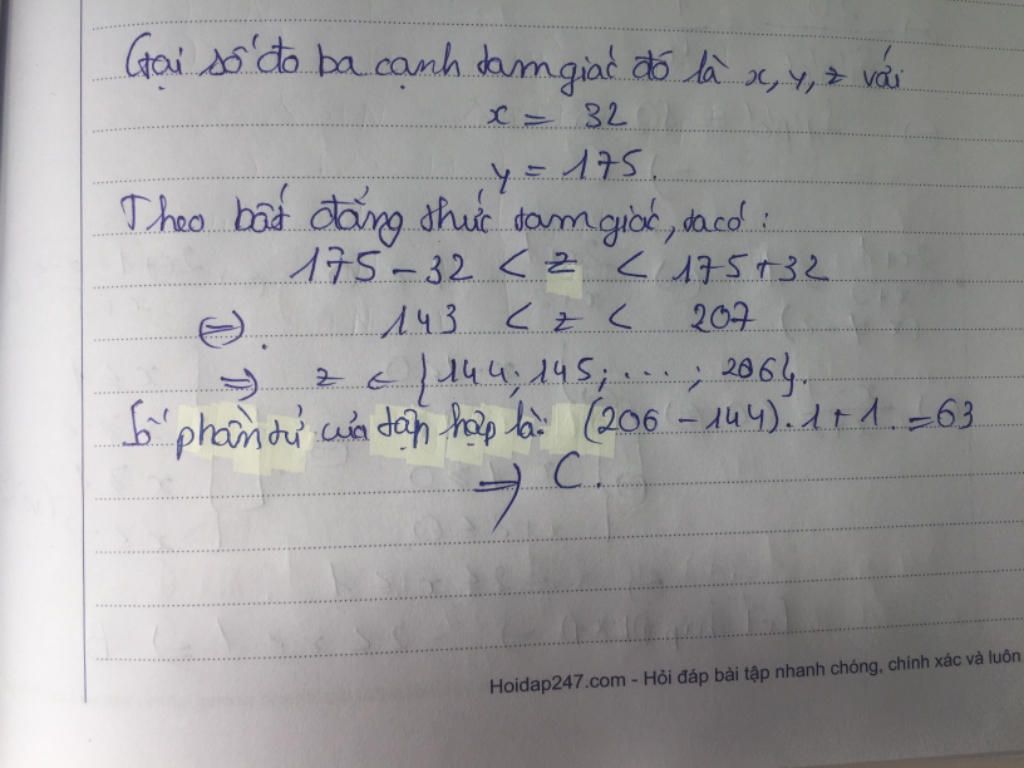 Gọi số đo ba cạnh tam giác đó là x, y, z với
x = 32
y = 175.
Theo bất đẳng thức tam giác, ta có:
175 - 32 < z < 175 + 32
⇔. 143 < z < 207
⇒ z ∈ {144; 145; ...; 206}.
Số phần tử của tập hợp là: (206 - 144). 1 + 1. = 63
⇒ C.
Hoidap247.com - Hỏi đáp bài tập nhanh chóng, chính xác và luôn